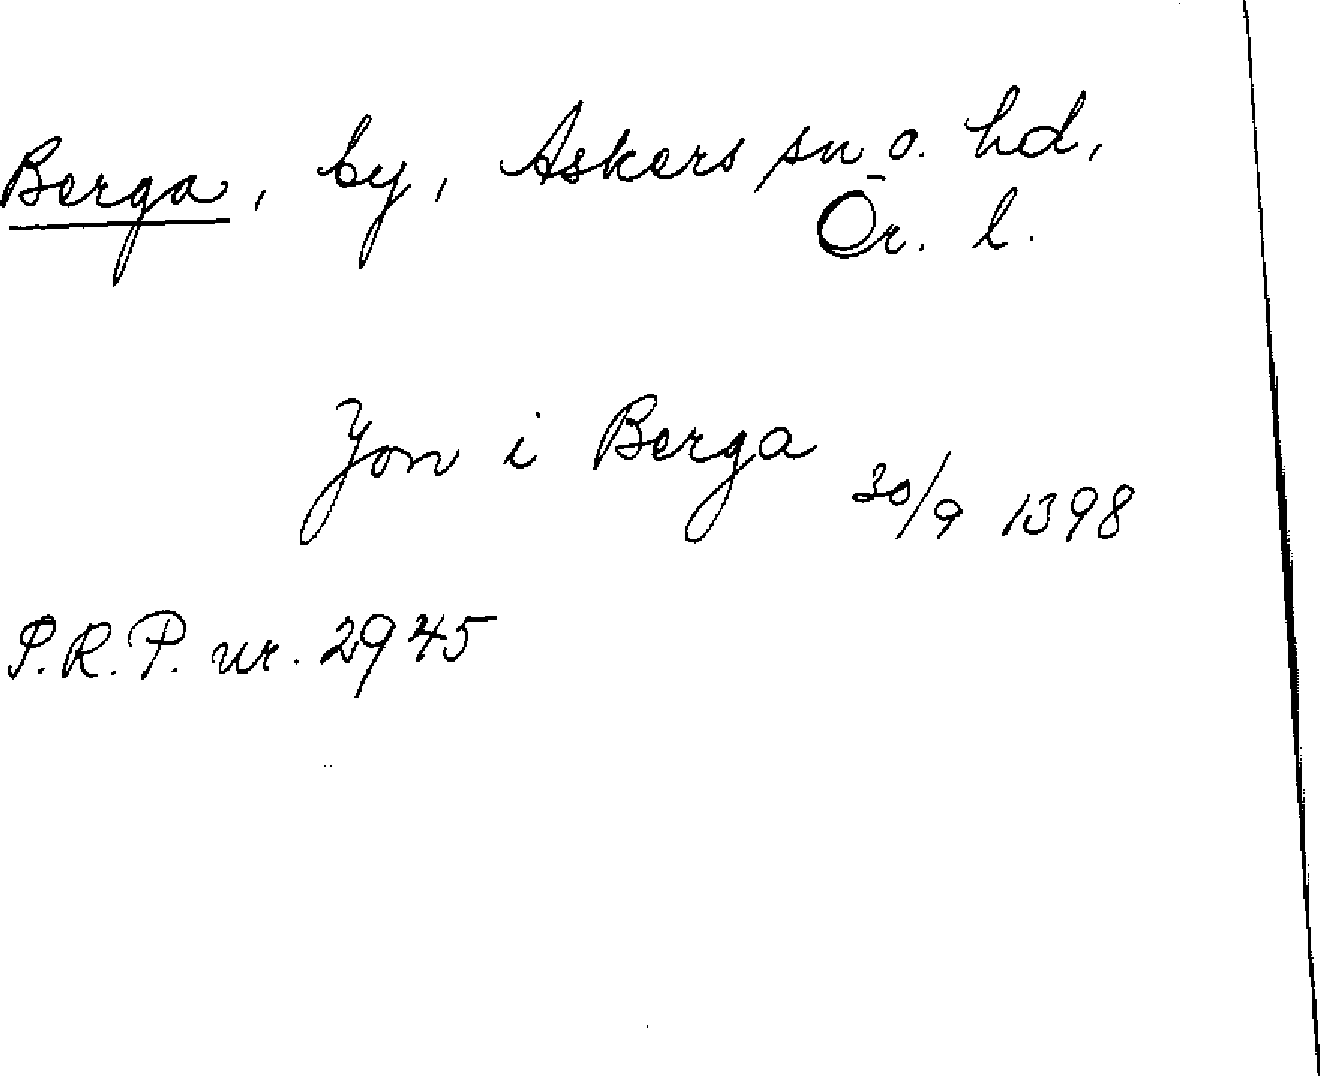 Berga, by, Askers sn o. hd,
Ör. l.
Jon i Berga
30/9 1398
P.R.P. nr. 2945